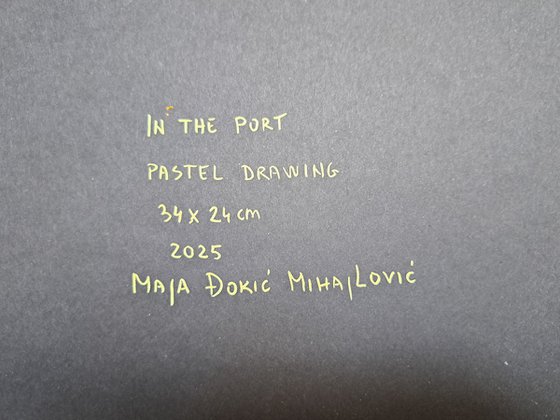 IN THE PORT
PASTEL DRAWING
34 x 24 cm
2025
MAJA ĐOKIĆ MIHAJLOVIĆ